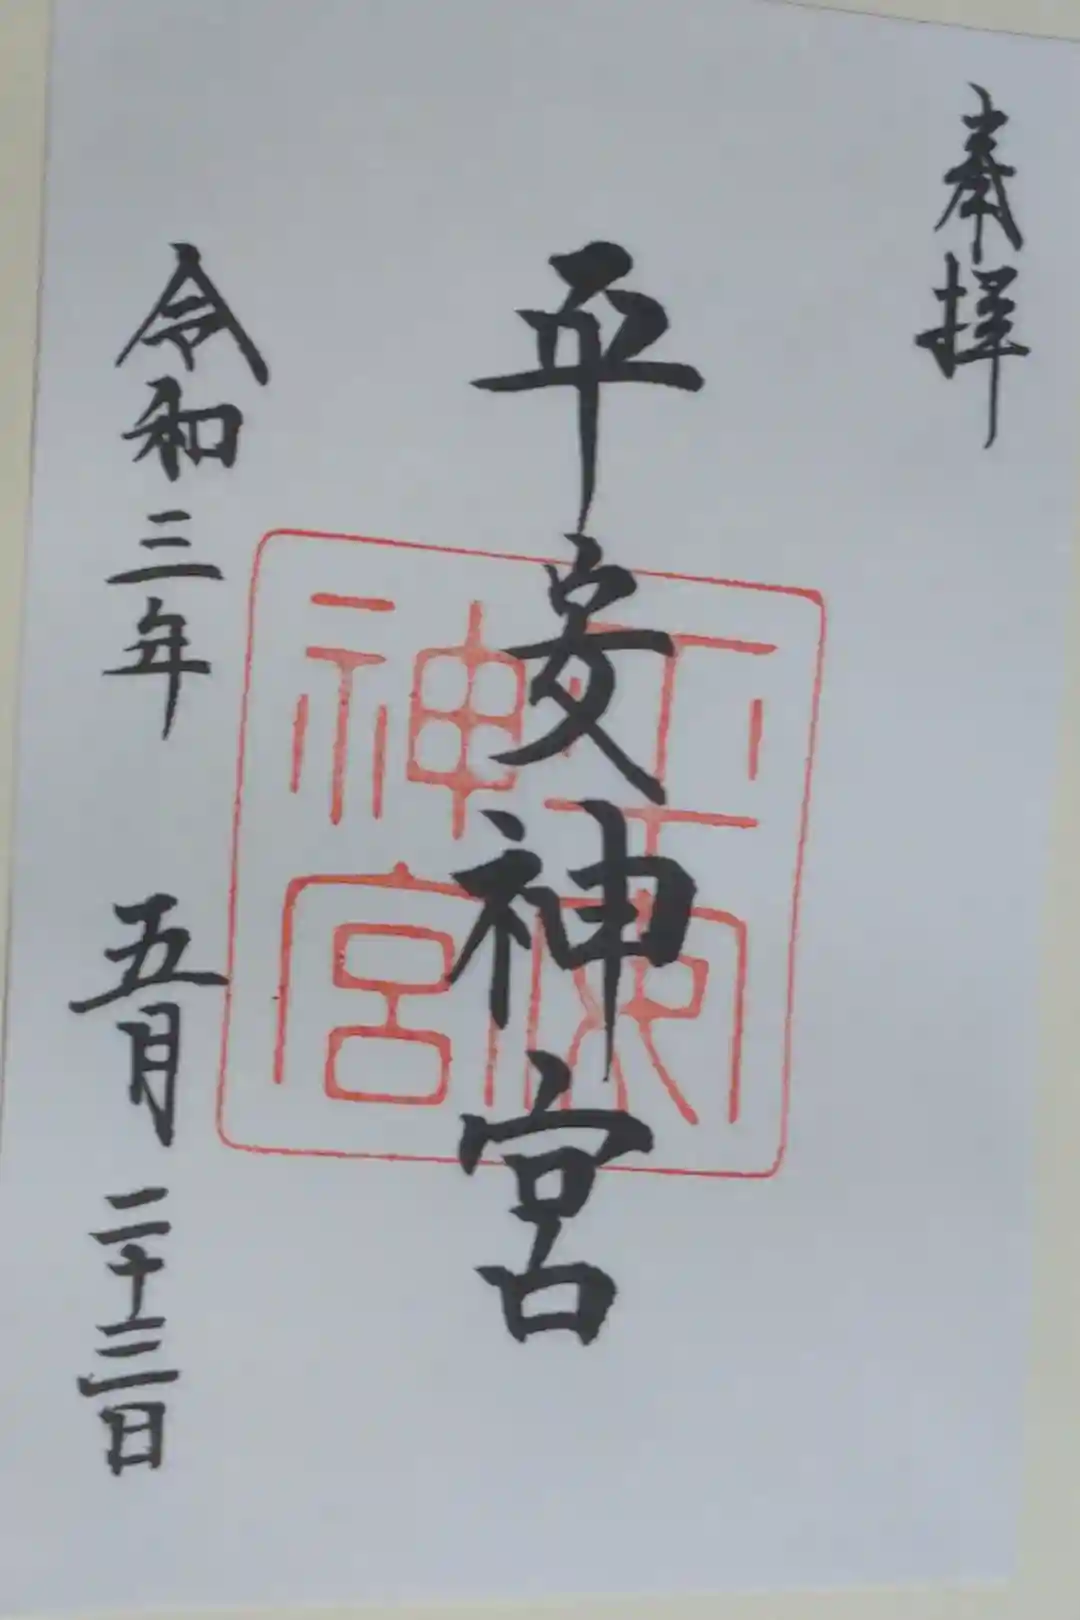 奉拝
平安神宮
平安神宮
令和三年 五月 二十三日